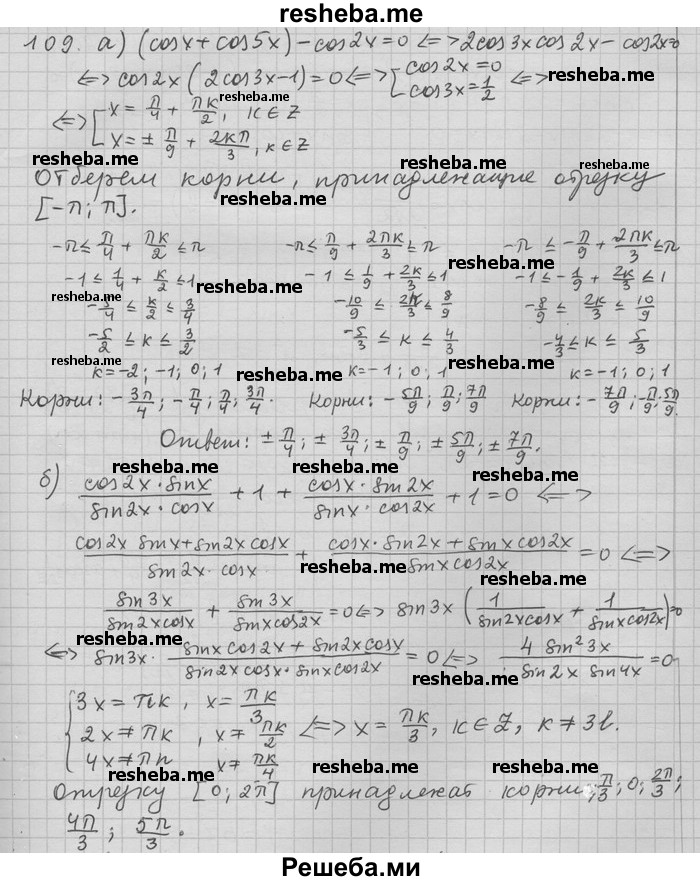 resheba.me
109. а) (cosx + cos5x) - cos2x = 0 <=> 2cos3x cos2x - cos2x=0
<=> cos2x (2cos3x-1) = 0 <=> [cos2x = 0 cos3x = 1/2 <=>
resheba.me
<=> [x = π/4 + πk/2, k∈Z
x = ± π/9 + 2kπ/3, k∈Z
resheba.me resheba.me
Отберем корни, принадлежащие отрезку
[-π; π].
-π ≤ π/4 + πk/2 ≤ π -π ≤ π/9 + 2πk/3 ≤ π -π ≤ -π/9 + 2πk/3 ≤ π
resheba.me
-1 ≤ 1/4 + k/2 ≤ 1 -1 ≤ 1/9 + 2k/3 ≤ 1 -1 ≤ -1/9 + 2k/3 ≤ 1
resheba.me resheba.me
-5/4 ≤ k/2 ≤ 3/4 -10/9 ≤ 2k/3 ≤ 8/9 -8/9 ≤ 2k/3 ≤ 10/9
-5/2 ≤ k ≤ 3/2 -5/3 ≤ k ≤ 4/3 -4/3 ≤ k ≤ 5/3
resheba.me resheba.me
k = -2; -1; 0; 1 k = -1; 0; 1 k = -1; 0; 1
Корни: -3π/4; -π/4; π/4; 3π/4. Корни: -5π/9; π/9; 7π/9 Корни: -7π/9; -π/9; 5π/9.
resheba.me
Ответ: ± π/4; ± 3π/4; ± π/9; ± 5π/9; ± 7π/9.
resheba.me resheba.me
б) cos2x·sinx/sin2x·cosx + 1 + cosx·sin2x/sinx·cos2x + 1 = 0 <=>
resheba.me
cos2x sinx + sin2x cosx/sin2x·cosx + cosx·sin2x + sinx cos2x/sinx cos2x = 0 <=>
resheba.me
resheba.me
sin3x/sin2xcosx + sin3x/sinxcos2x = 0 <=> sin3x (1/sin2xcosx + 1/sinxcos2x) = 0
resheba.me
<=> sin3x · sinx cos2x + sin2x cosx/sin2x cosx · sinx cos2x = 0 <=> 4 sin²3x/sin2x sin4x = 0
resheba.me
{3x = πk, x = πk/3
2x ≠ πk, x ≠ πk/2 <=> x = πk/3, k∈Z, k ≠ 3l.
4x ≠ πn x ≠ πk/4
resheba.me resheba.me
Отрезку [0; 2π] принадлежат корни: π/3; 0; 2π/3;
resheba.me
4π/3; 5π/3.
Решеба.ми